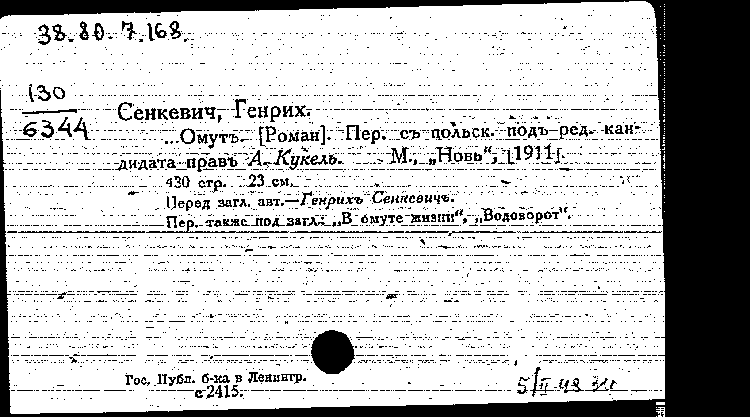 38.80.7.168.
130
6344
Сенкевич, Генрих.
...Омутъ. [Роман]. Пер. съ польск. подъ ред. кан-
дидата правъ А. Кукель. М., „Новь“, [1911].
430 стр. 23 см.
Перед загл. авт.—Генрихъ Сенкевичъ.
Пер. также под загл.: „В омуте жизни“, „Водоворот“.
Гос. Публ. б-ка в Ленингр.
с 2415.
5/II 48